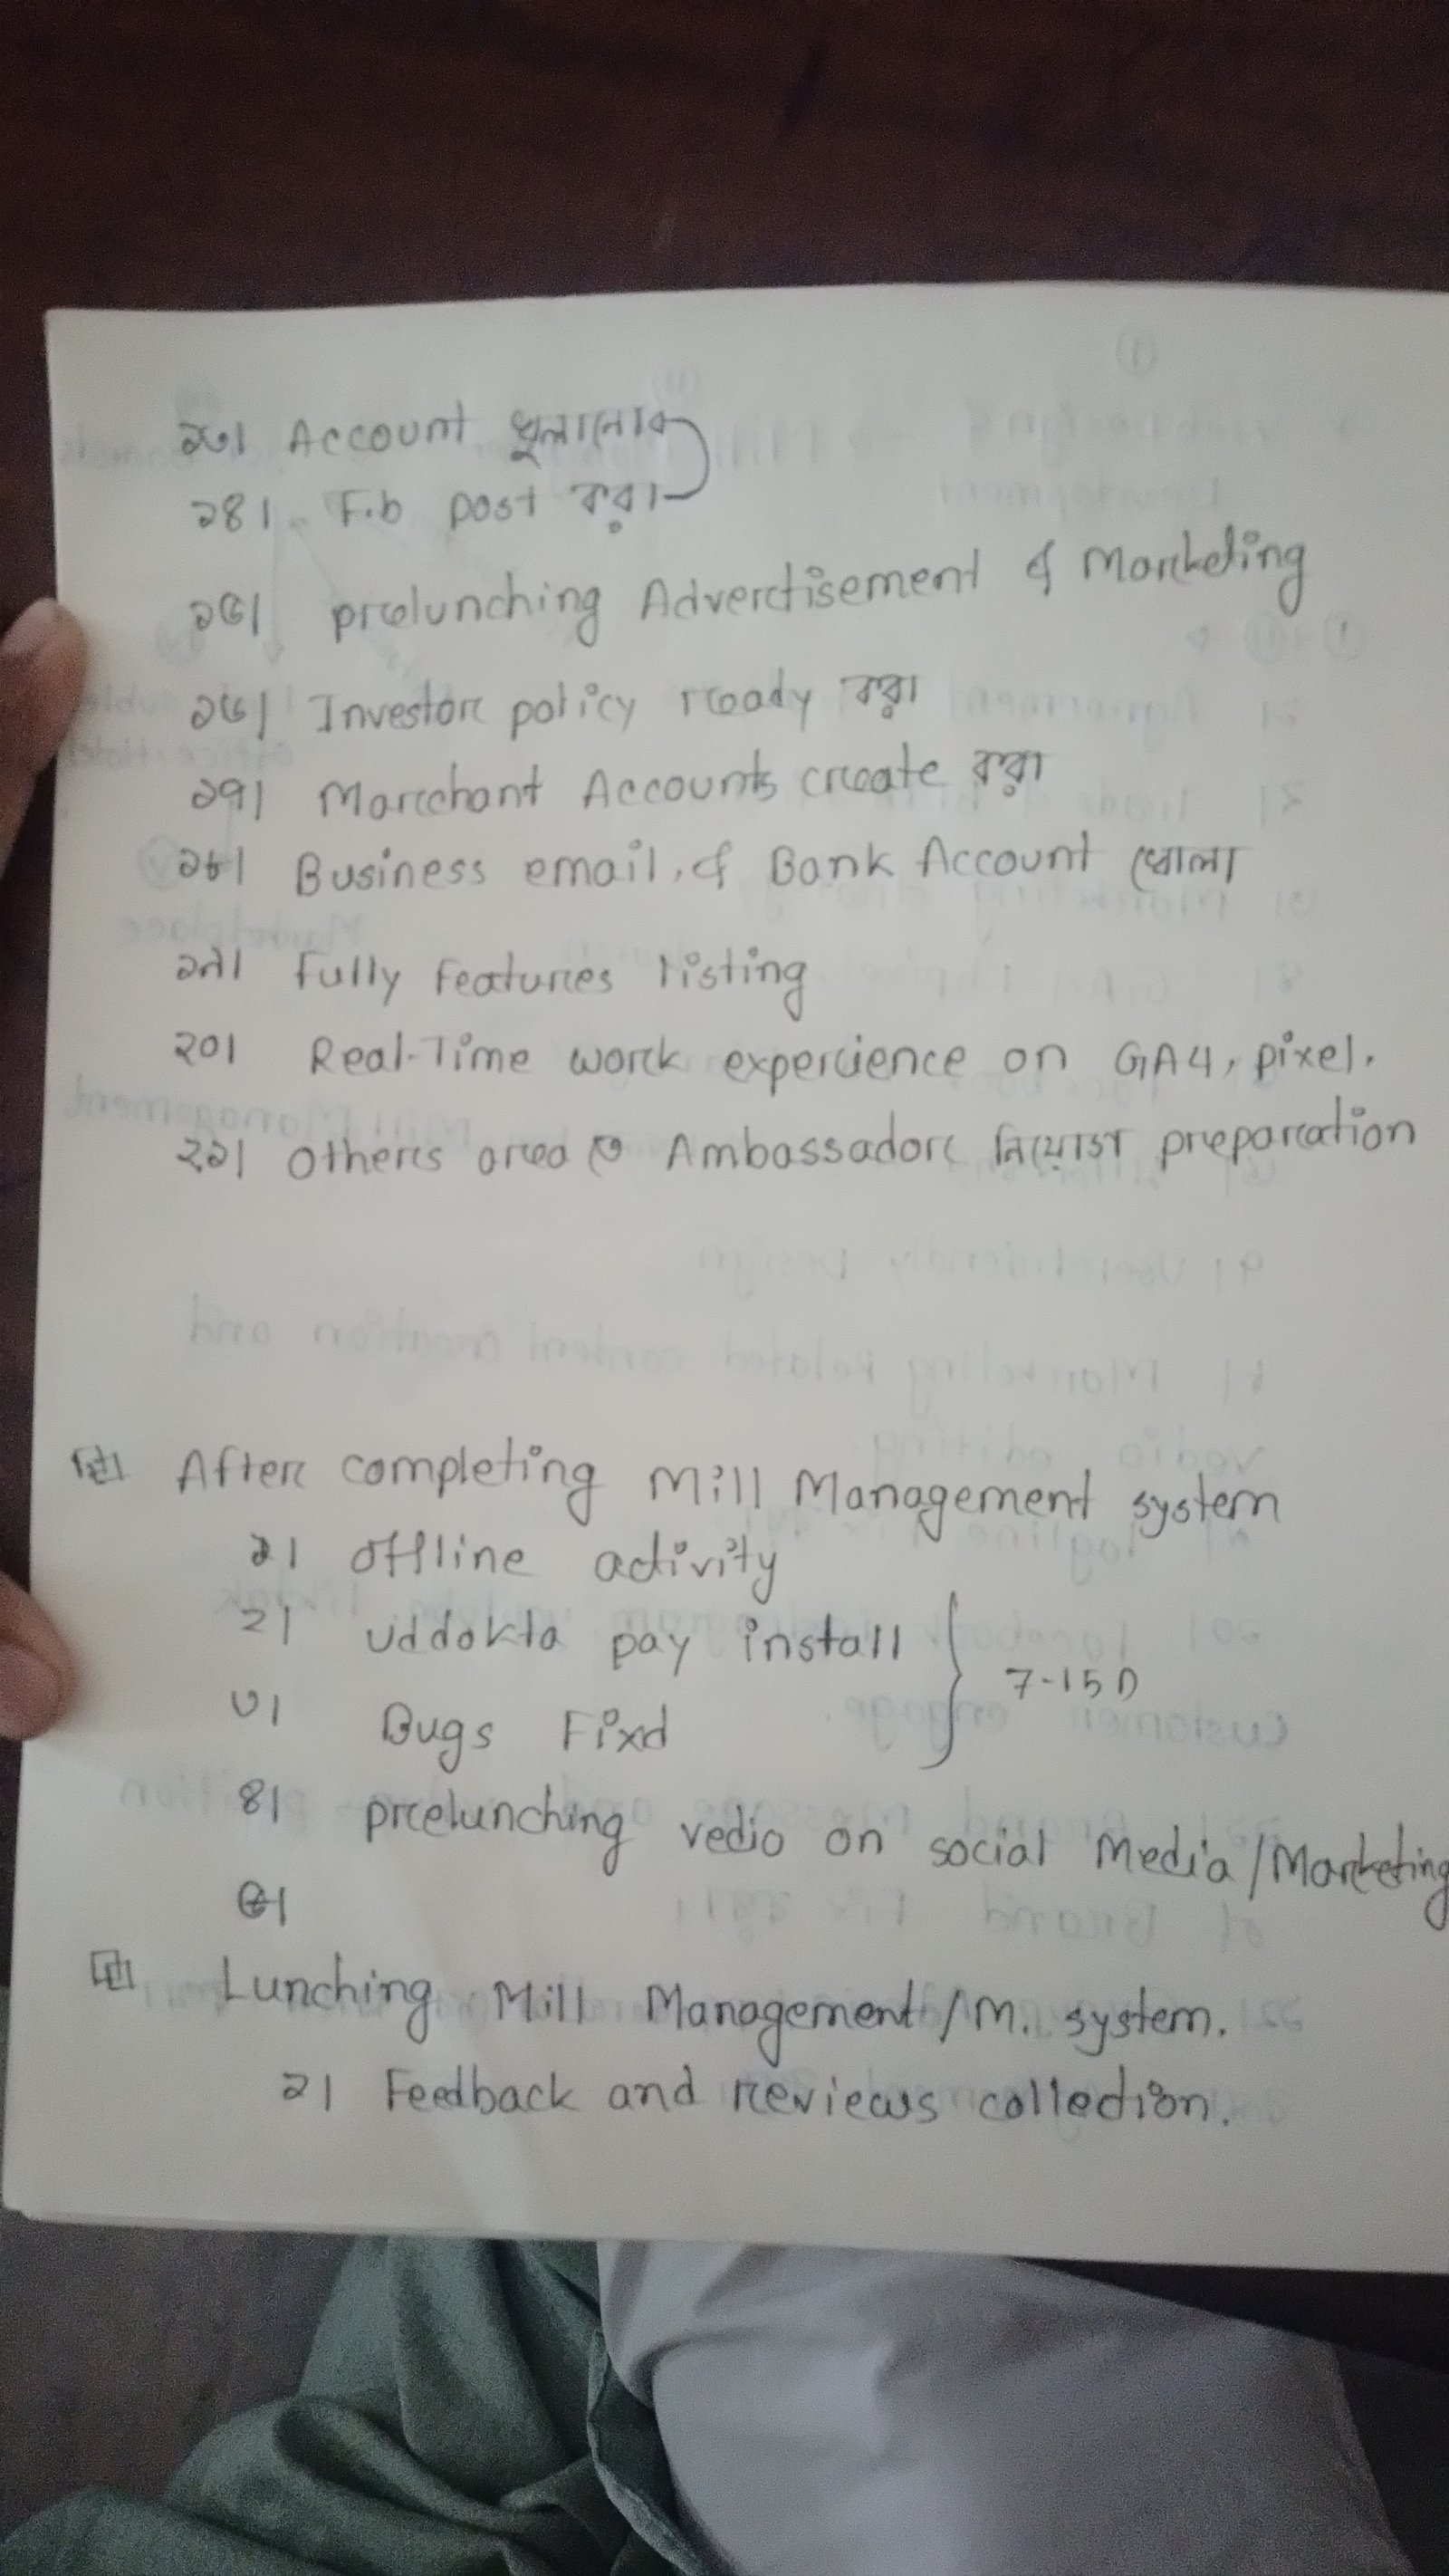 ১৩। Account খুলানোর
১৪। F.b post করা
১৫। prelunching Advertisement & Marketing
১৬। Investor policy ready করা
১৭। Marchant Accounts create করা
১৮। Business email, & Bank Account খোলা
১৯। Fully Features listing
২০। Real-Time work experience on GA4, pixel.
২১। others area তে Ambassador নিয়োগ preparation
After completing Mill Management system
১। offline activity
২। uddokta pay install
7-15 D
৩। Bugs Fixd
৪। prelunching vedio on social Media/Marketing
৫।
Lunching Mill Management/M. system.
১। Feedback and reviews collection.